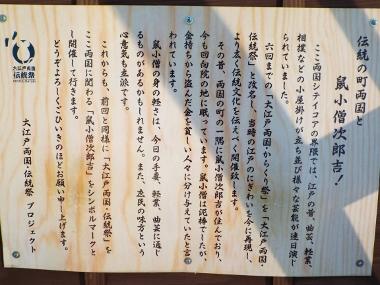 伝統の町両国と
鼠小僧次郎吉!
ここ両国シティコアの界隈では、江戸の昔、曲芸、軽業、
相撲などの小屋掛けが立ち並び様々な芸能が連日演じ
られていました。
六回までの「大江戸両国からくり祭」を「大江戸両国・
伝統祭」と改名し、当時の江戸のにぎわいを今に再現し、
より広く伝統文化を伝えべく開催致します。
その昔、両国の町の一隅に鼠小僧次郎吉が住んでおり、
今も回向院の地に眠っています。鼠小僧は泥棒でしたが、
金持ちから盗んだ金を貧しい人々に分け与えていたと言
われています。
鼠小僧の身の軽さは、今回の手妻、軽業、曲芸に通じ
るものがあるかもしれません。また、庶民の味方という
心意気も立派です。
これからも、前回と同様に「大江戸両国・伝統祭」を
ここ両国に関わる「鼠小僧次郎吉」をシンボルマークと
し開催して行きます。
どうぞよろしくごひいきのほどお願い申し上げます。
大江戸両国・伝統祭 プロジェクト
大江戸両国
伝統祭